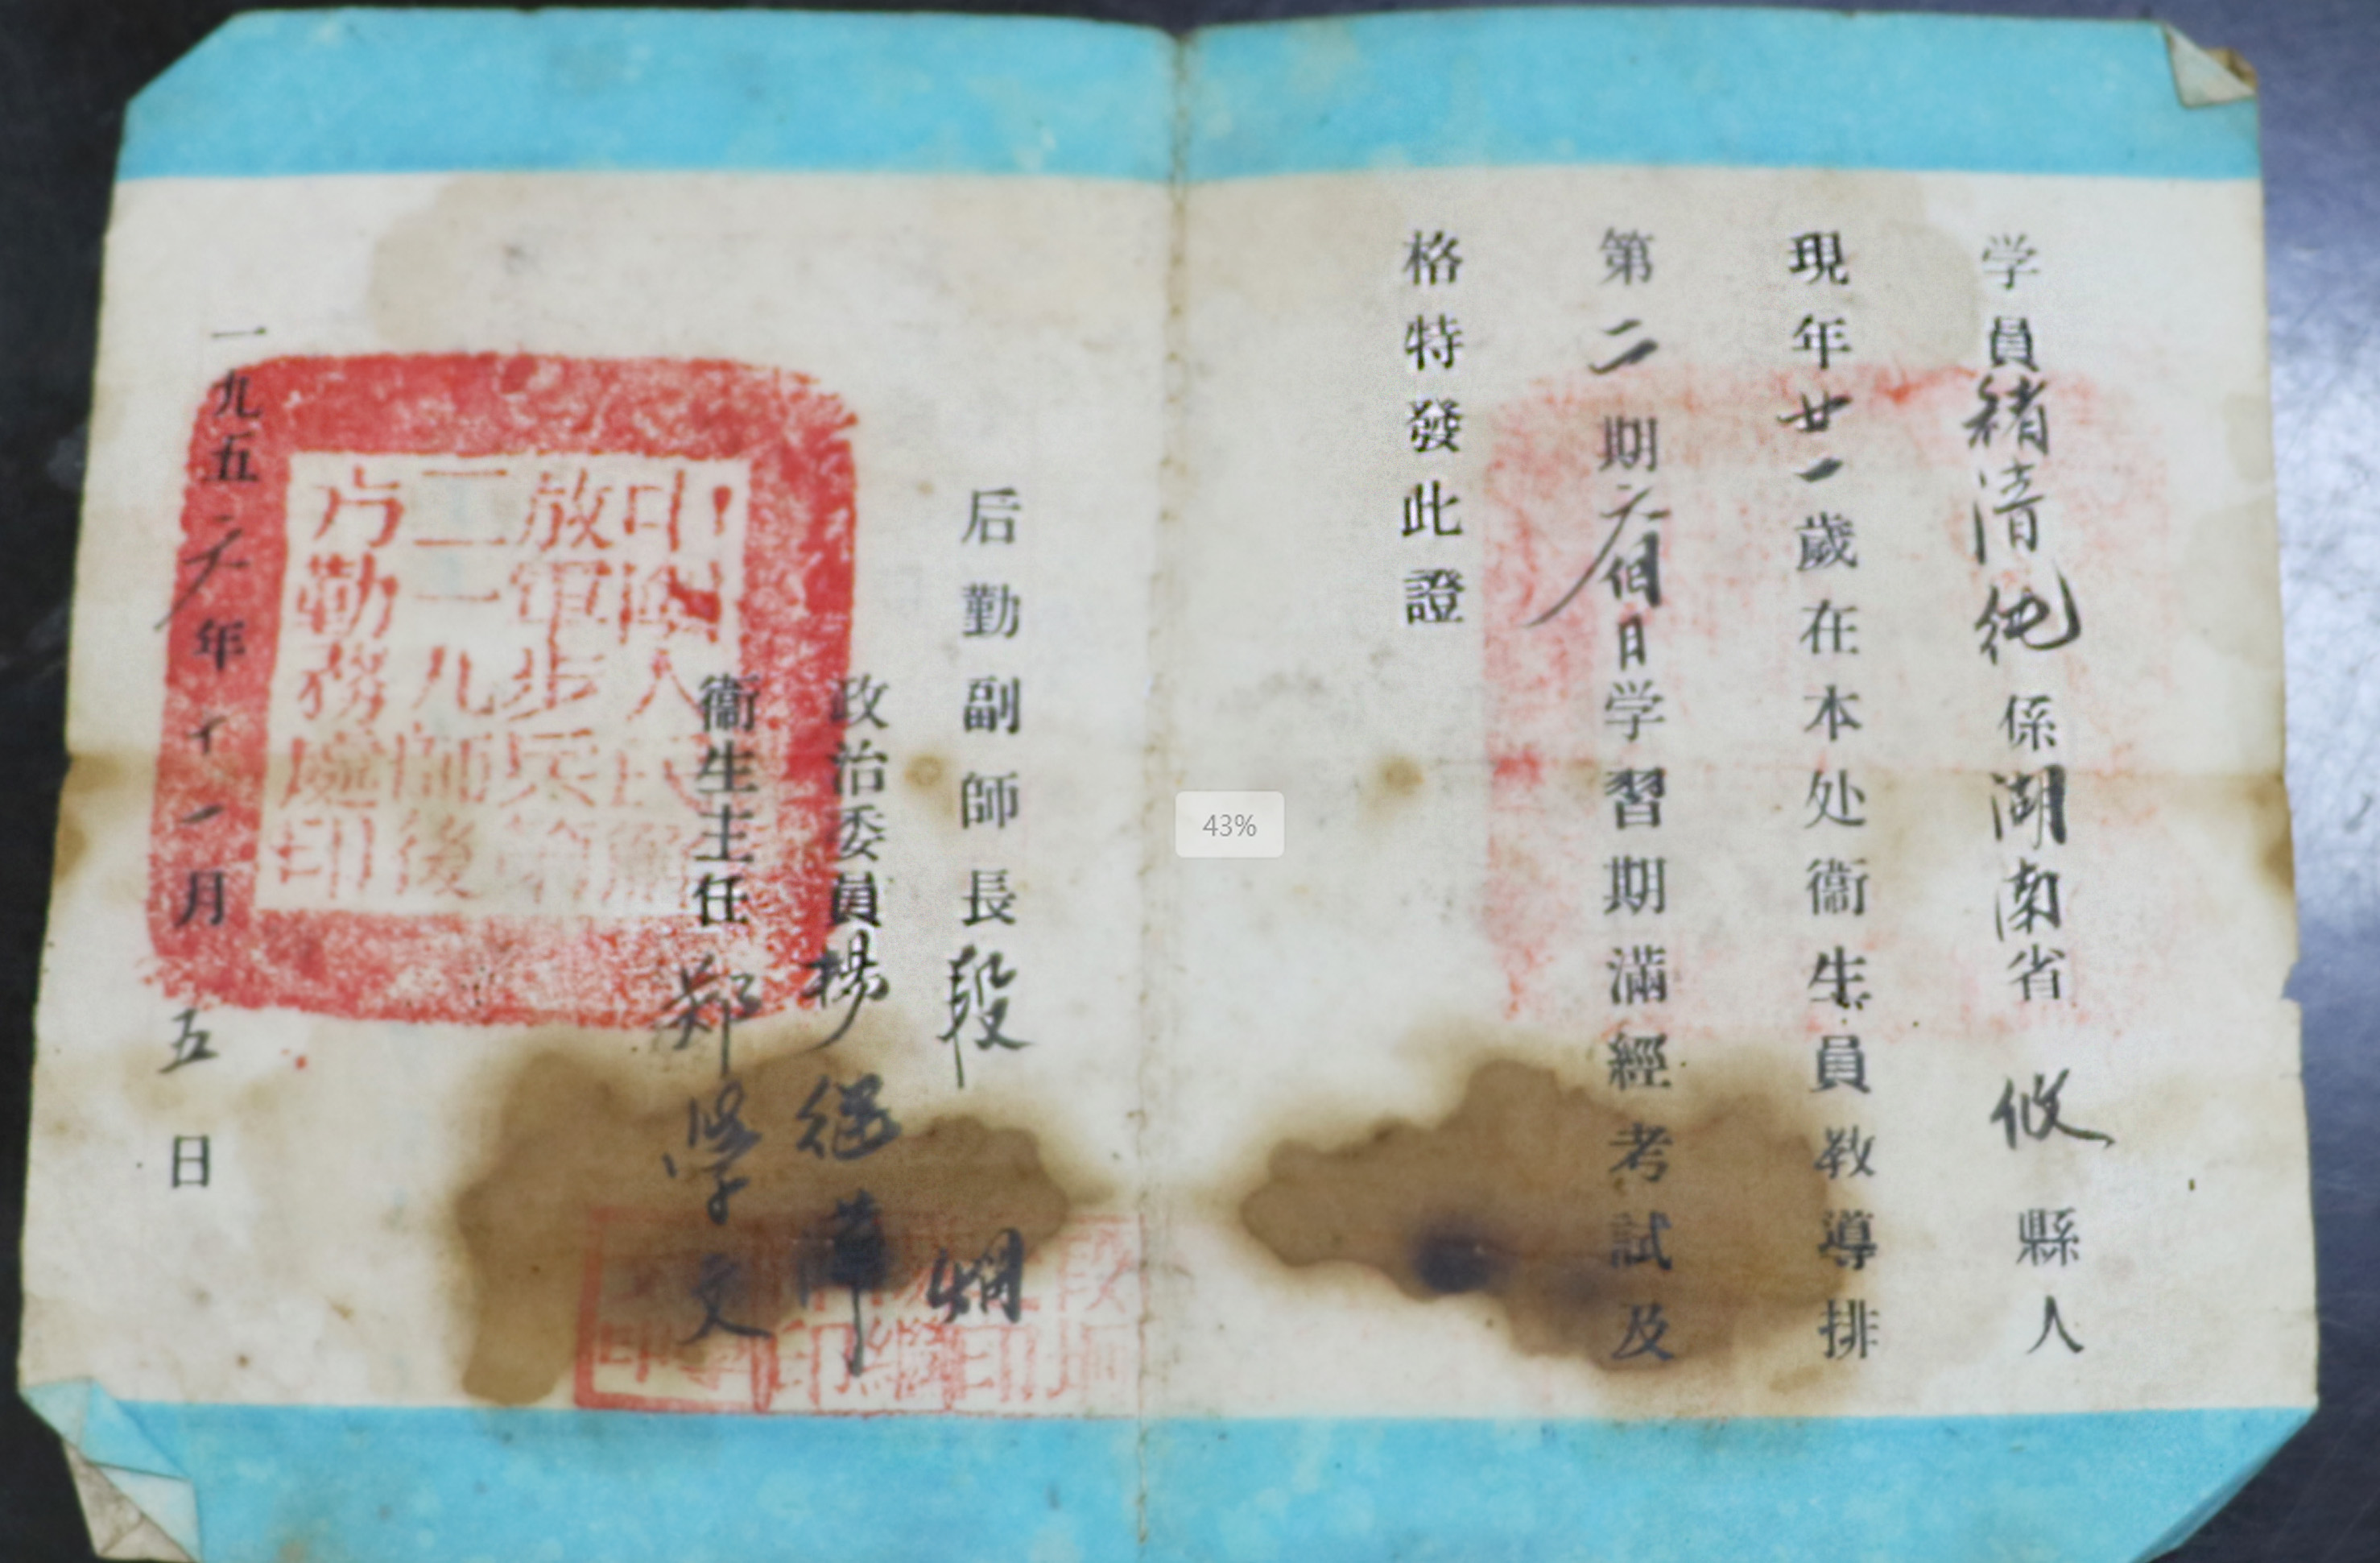 学員緒清純係湖南省攸縣人
現年廿一歲在本处衞生員教導排
第二期六個月学習期滿經考試及
格特發此證
后勤副師長段炯
政治委員楊继華
衞生主任郑学文
一九五六年十一月五日
中國人民解
放軍步兵第
二一九師後
方勤務處印
43%